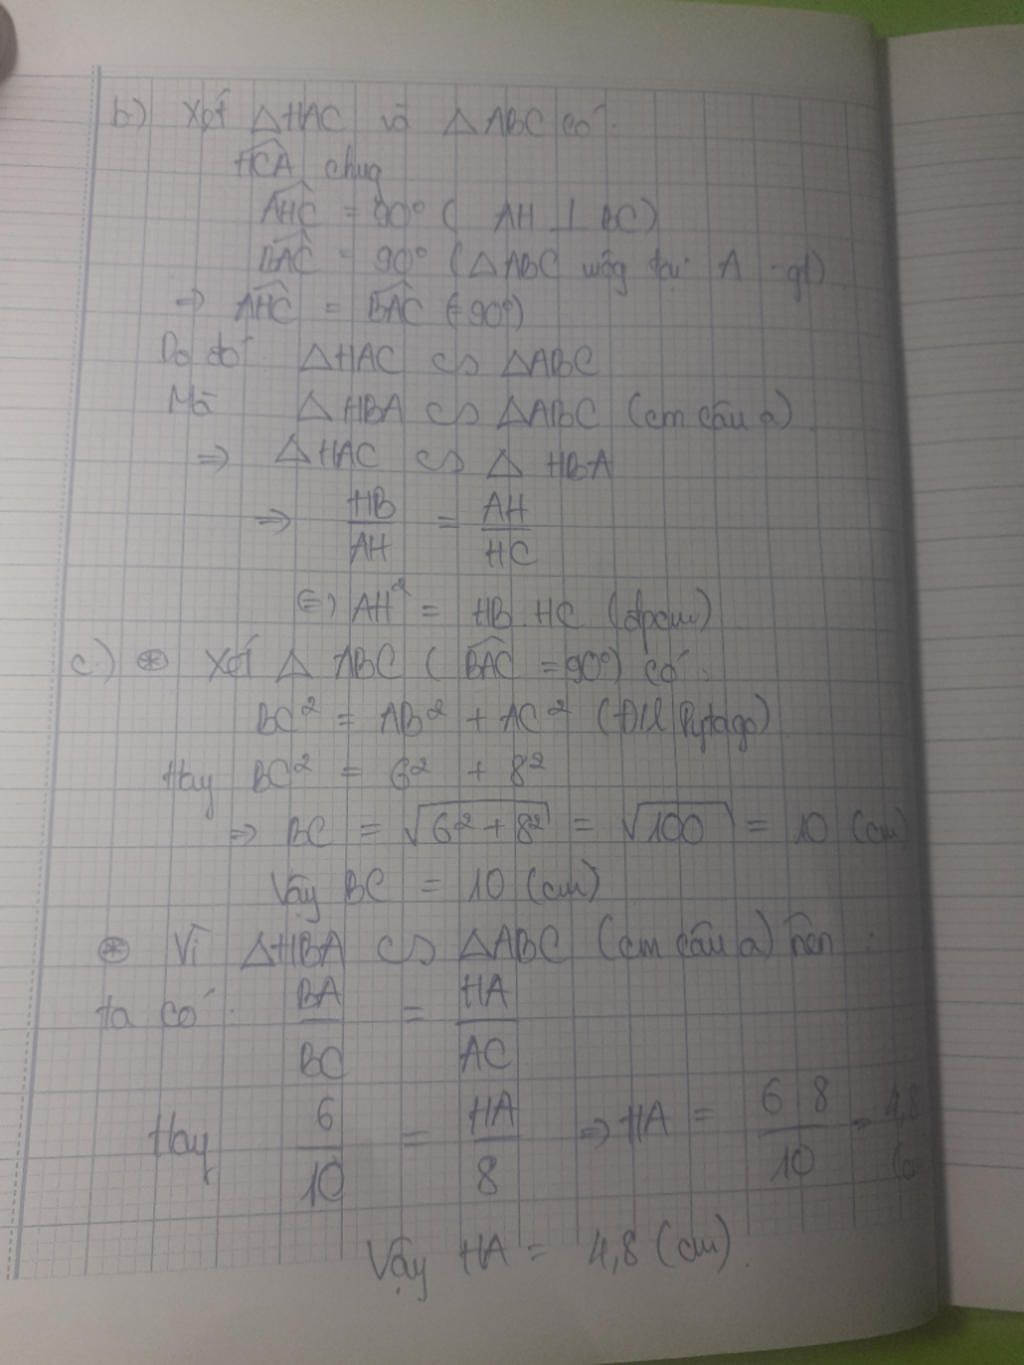 b.) Xét △HAC và △ABC có:
HCA chug
AHC = 90° ( AH ⊥ BC)
BAC = 90° (△ABC wôg tại A - gt)
=> AHC = BAC (=90°)
Do đó △HAC ∽ △ABC
Mà △HBA ∽ △ABC (cm câu a)
=> △HAC ∽ △HBA
=> HB/AH = AH/HC
<=> AH² = HB HC (đpcm)
c.) ⊛ Xét △ ABC ( BAC = 90°) có:
BC² = AB² + AC² (Đ/l Pytago)
Hay BC² = 6² + 8²
=> BC = √(6²+8²) = √100 = 10 (cm)
Vậy BC = 10 (cm)
⊛ Vì △HBA ∽ △ABC (cm câu a) nên :
ta có: BA/BC = HA/AC
Hay 6/10 = HA/8 => HA = 6 8/10 = 4,8
Vậy HA = 4,8 (cm).